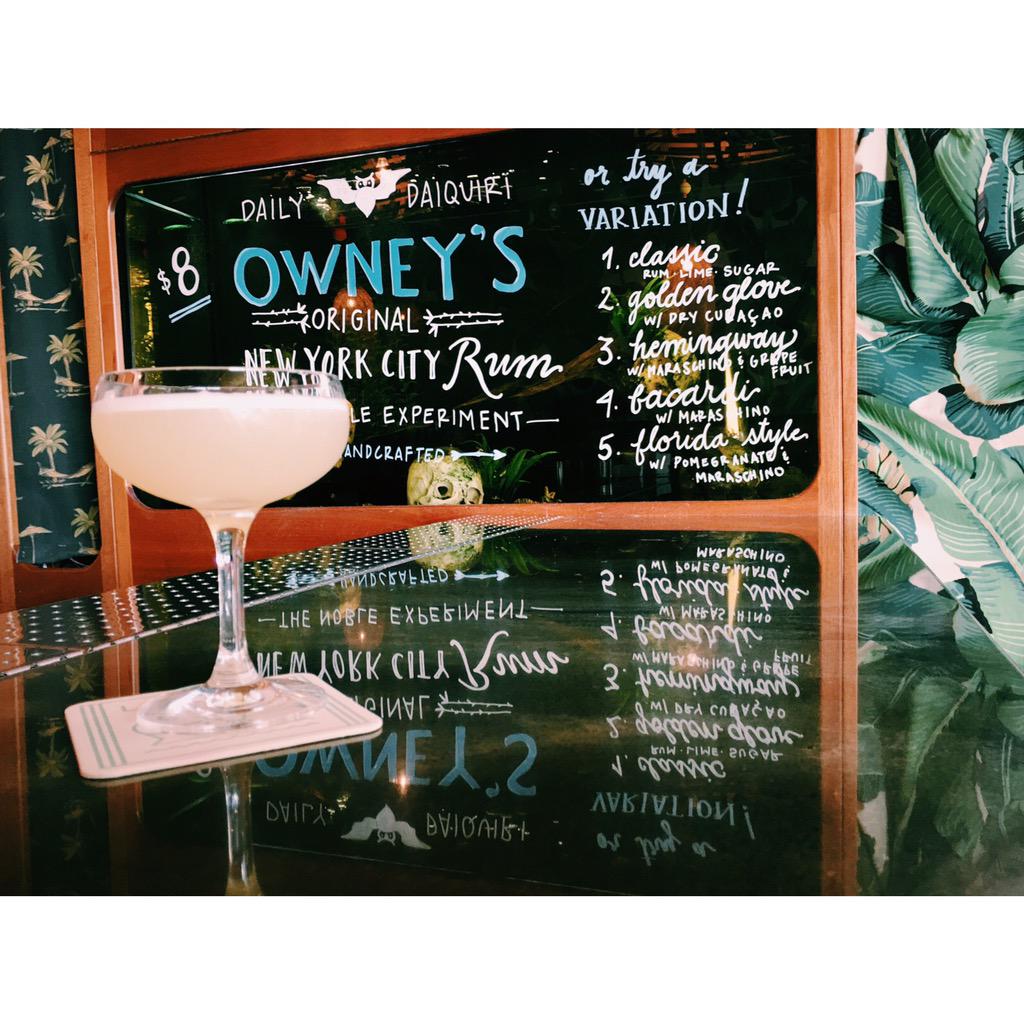 DAILY DAIQUIRI
$8
OWNEY'S
ORIGINAL
NEW YORK CITY Rum
BLE EXPERIMENT
ANDCRAFTED
or try a
VARIATION!
1. classic
RUM · LIME · SUGAR
2. golden glove
W/ DRY CURAÇAO
3. hemingway
W/ MARASCHINO & GRAPE
FRUIT
4. bacardi
W/ MARASCHINO
5. florida-style
W/ POMEGRANATE &
MARASCHINO